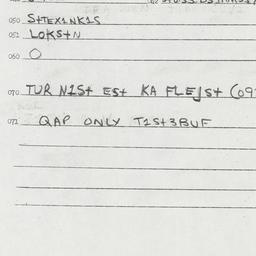 050 S+TEX1NK1S
051 LOKS+N
060 O
070 TUR N1S+ ES+ KA FLEJS+ (09
071 QAP ONLY T1S+3BUF